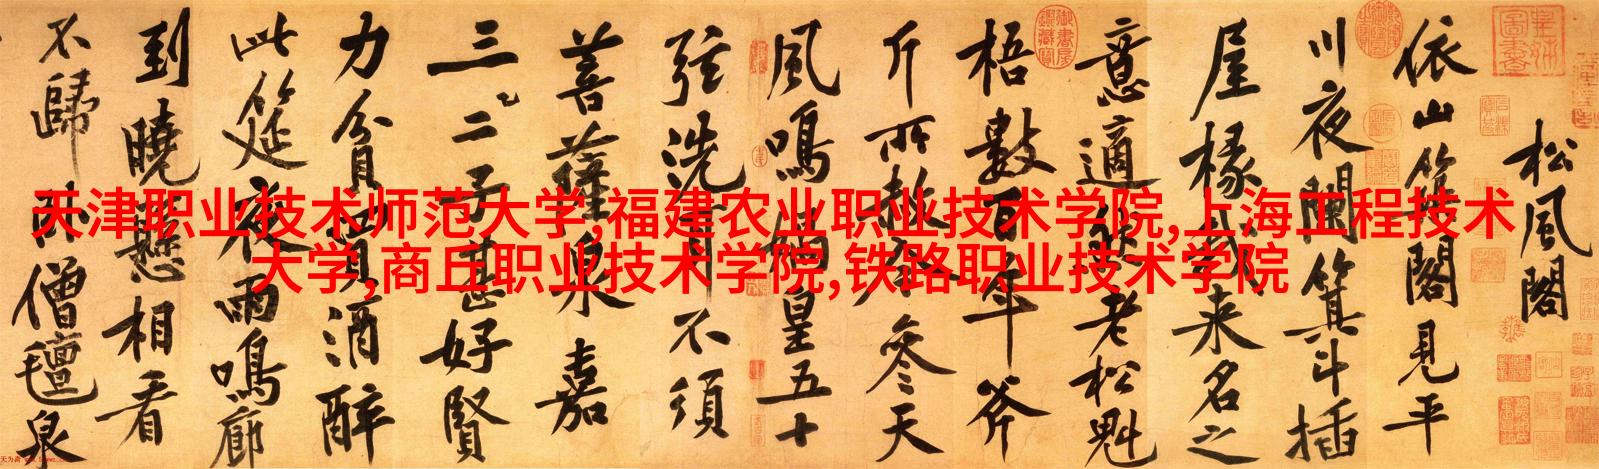 天津职业技术师范大学,福建农业职业技术学院,上海工程技术
大学,商丘职业技术学院,铁路职业技术学院
松風閣
依山築閣見平
川夜闌箕斗插
屋椽我来名之
意適然老松魁
梧數百年斧
斤所赦今參天
風鳴媧皇五十
弦洗耳不須
菩薩泉嘉
三二子甚好賢
力貧買酒醉
此筵夜雨鳴廊
到曉懸相看
不歸臥僧氊泉